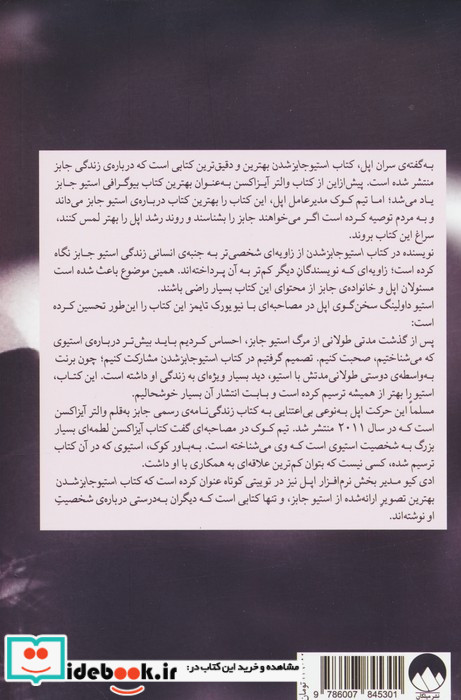 به‌گفته‌ی سران اپل، کتاب استیوجابزشدن بهترین و دقیق‌ترین کتابی است که درباره‌ی زندگی جابز
منتشر شده است. پیش‌ازاین از کتاب والتر آیزاکسن به‌عنوان بهترین کتاب بیوگرافی استیو جابز
یاد می‌شد؛ اما تیم کوک مدیرعامل اپل، این کتاب را بهترین کتاب درباره‌ی استیو جابز می‌داند
و به مردم توصیه کرده است اگر می‌خواهند جابز را بشناسند و روند رشد اپل را بهتر لمس کنند،
سراغ این کتاب بروند.
نویسنده در کتاب استیوجابزشدن از زاویه‌ای شخصی‌تر به جنبه‌ی انسانی زندگی استیو جابز نگاه
کرده است؛ زاویه‌ای که نویسندگان دیگر کم‌تر به آن پرداخته‌اند. همین موضوع باعث شده است
مسئولان اپل و خانواده‌ی جابز از محتوای این کتاب بسیار راضی باشند.
استیو داولینگ سخن‌گوی اپل در مصاحبه‌ای با نیویورک تایمز این کتاب را این‌طور تحسین کرده
است:
پس از گذشت مدتی طولانی از مرگ استیو جابز، احساس کردیم باید بیش‌تر درباره‌ی استیوی
که می‌شناختیم، صحبت کنیم. تصمیم گرفتیم در کتاب استیوجابزشدن مشارکت کنیم؛ چون برنت
به‌واسطه‌ی دوستی طولانی‌مدتش با استیو، دید بسیار ویژه‌ای به زندگی او داشته است. این کتاب،
استیو را بهتر از همیشه ترسیم کرده است و بابت انتشار آن بسیار خوشحالیم.
مسلماً این حرکت اپل به‌نوعی بی‌اعتنایی به کتاب زندگی‌نامه‌ی رسمی جابز به‌قلم والتر آیزاکسن
است که در سال ۲۰۱۱ منتشر شد. تیم کوک در مصاحبه‌ای گفت کتاب آیزاکسن لطمه‌ای بسیار
بزرگ به شخصیت استیوی است که وی می‌شناخته است. به‌باور کوک، استیوی که در آن کتاب
ترسیم شده، کسی نیست که بتوان کم‌ترین علاقه‌ای به همکاری با او داشت.
ادی کیو مدیر بخش نرم‌افزار اپل نیز در توییتی کوتاه عنوان کرده است که کتاب استیوجابزشدن
بهترین تصویرِ ارائه‌شده از استیو جابز، و تنها کتابی است که دیگران به‌درستی درباره‌ی شخصیتِ
او نوشته‌اند.
مشاهده و خرید این کتاب در:
idebook.ir
9 786007 845301
نشر میلکان
تومان